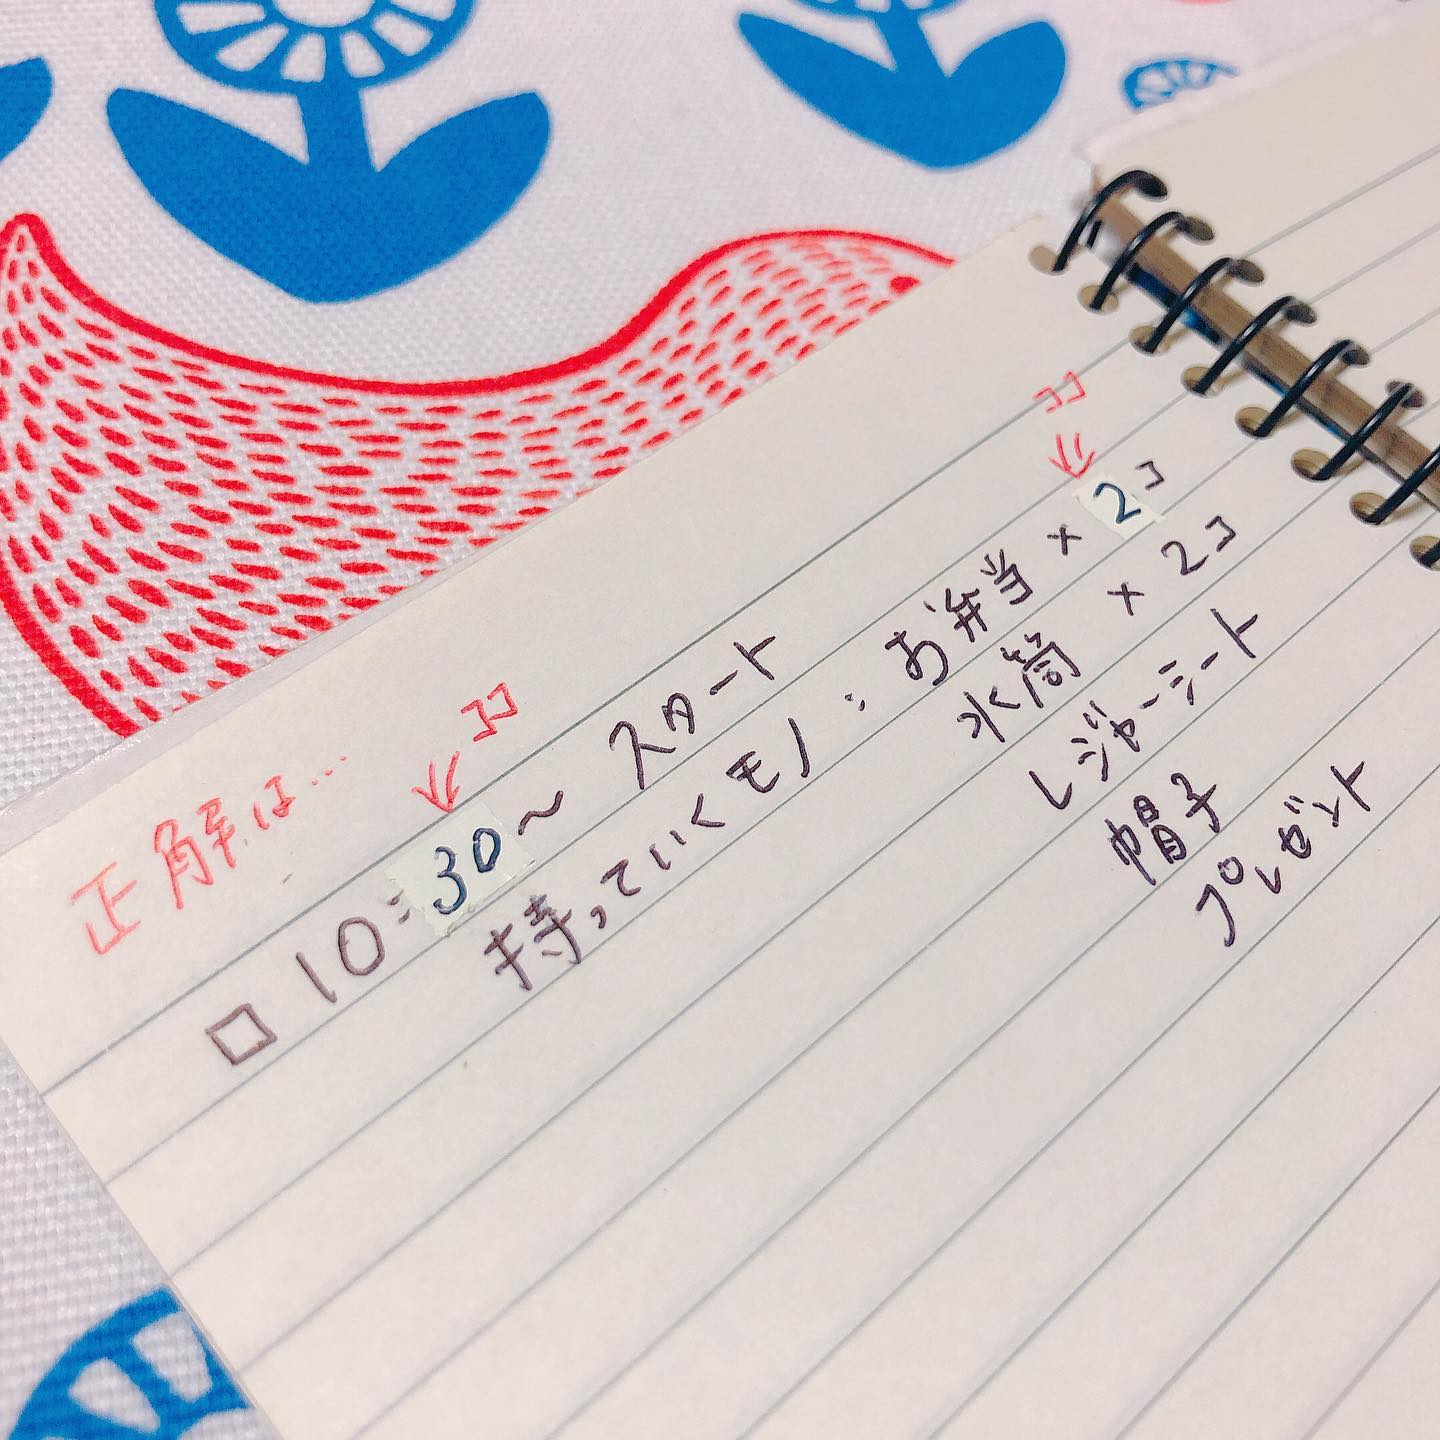 正解は…
ココ
ココ
□ 10:30〜 スタート
持っていくモノ：お弁当×2コ
水筒×2コ
レジャーシート
帽子
プレゼント